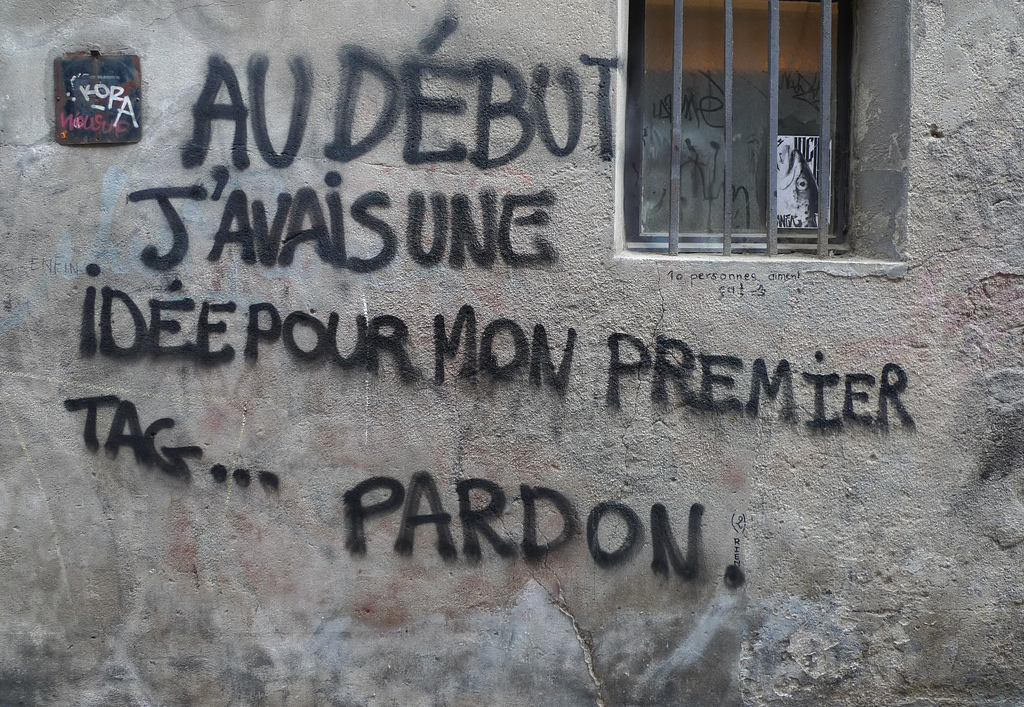 AU DÉBUT
J'AVAIS UNE
ENFIN
iDÉE POUR MON PREMiER
TAG...
PARDON.
KORA
10 personnes aiment
ça !
RIEN